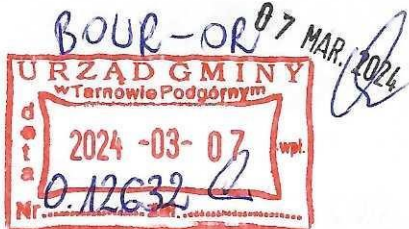 BOUR-OR
07 MAR. 2024
URZĄD GMINY
w Tarnowie Podgórnym
data
2024 -03- 07
wpł.
Nr 0.12632 zał.